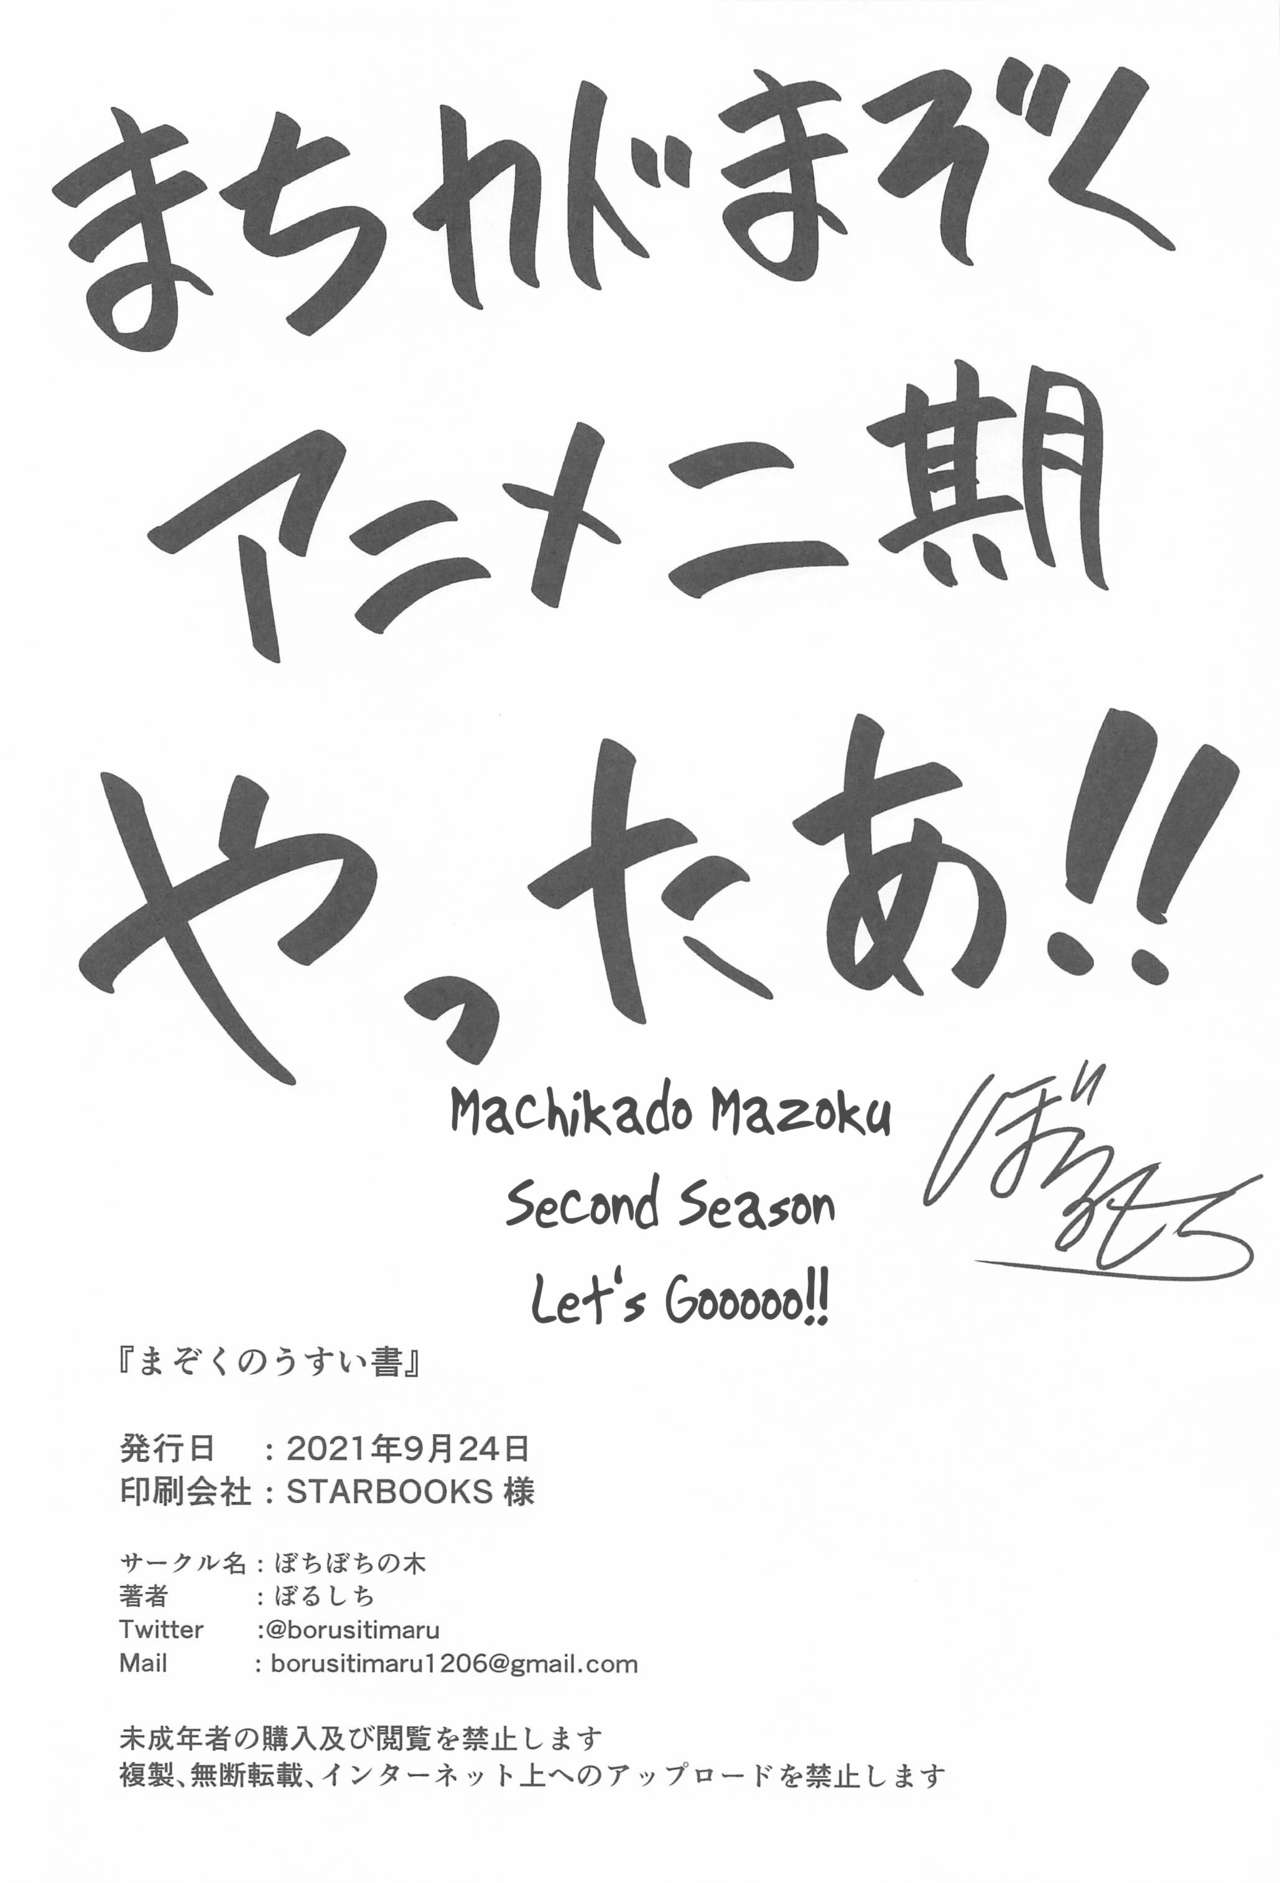 まちカドまぞく
アニメ二期
やったあ!!
Machikado Mazoku
Second Season
Let's Gooooo!!
ぼるしち
『まぞくのうすい書』
発行日 : 2021年9月24日
印刷会社 : STARBOOKS 様
サークル名 : ぼちぼちの木
著者 : ぼるしち
Twitter :@borusitimaru
Mail : borusitimaru1206@gmail.com
未成年者の購入及び閲覧を禁止します
複製、無断転載、インターネット上へのアップロードを禁止します